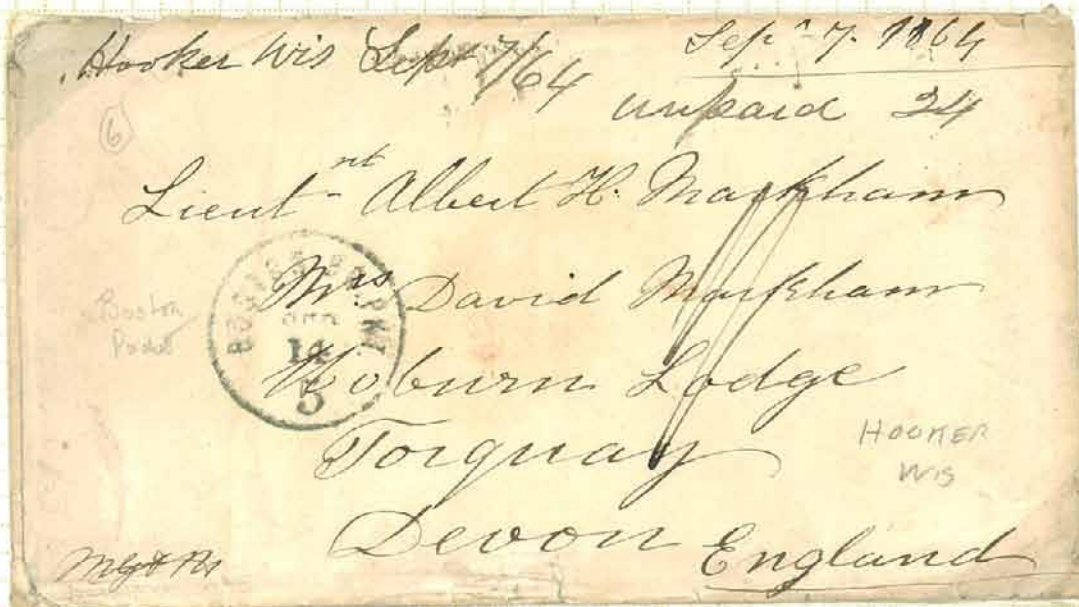 Hooker Wis Sept 7/64
Sepr 7. 1864
unpaid 24
6
Lieutnt Albert H. Markham
Mrs David Markham
Woburn Lodge
Torquay
Devon England
BOSTON BR. PKT.
SEP
14
5
Boston
HOOKER
WIS